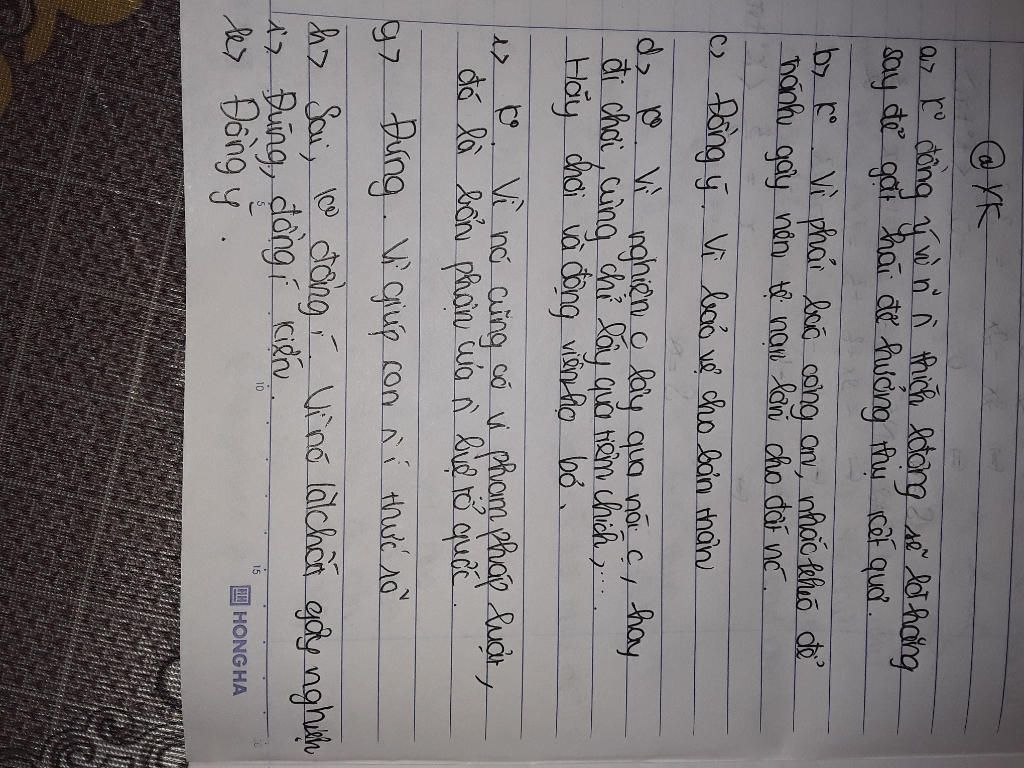 @ YK
a> k° đồng ý vì n` n` thích lđộng sẽ lđ hăng
say để gặt hái để hưởng thụ kết quả.
b> k°. Vì phải báo công an, nhắc khéo để
tránh gây nên tệ nạn lớn cho đất nc.
c> Đồng ý. Vì bảo vệ cho bản thân
d> k°. Vì nghiện c lây qua nói c, hay
đi chơi, cũng chỉ lây qua tiêm chích,...
Hãy chơi và động viên họ bỏ.
k°. Vì nó cũng có vi phạm pháp luật,
đó là bổn phận của n` bvệ tổ quốc.
g> Đúng. Vì giúp con n` ý thức
h> Sai, k° đồng ý. Vì nó là chất gây nghiện
i> Đúng, đồng ý kiến.
k> Đồng ý.
5 10 15
HONG HA